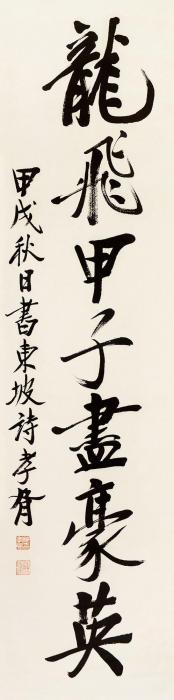 龍飛甲子盡豪英
甲戌秋日書東坡詩孝胥